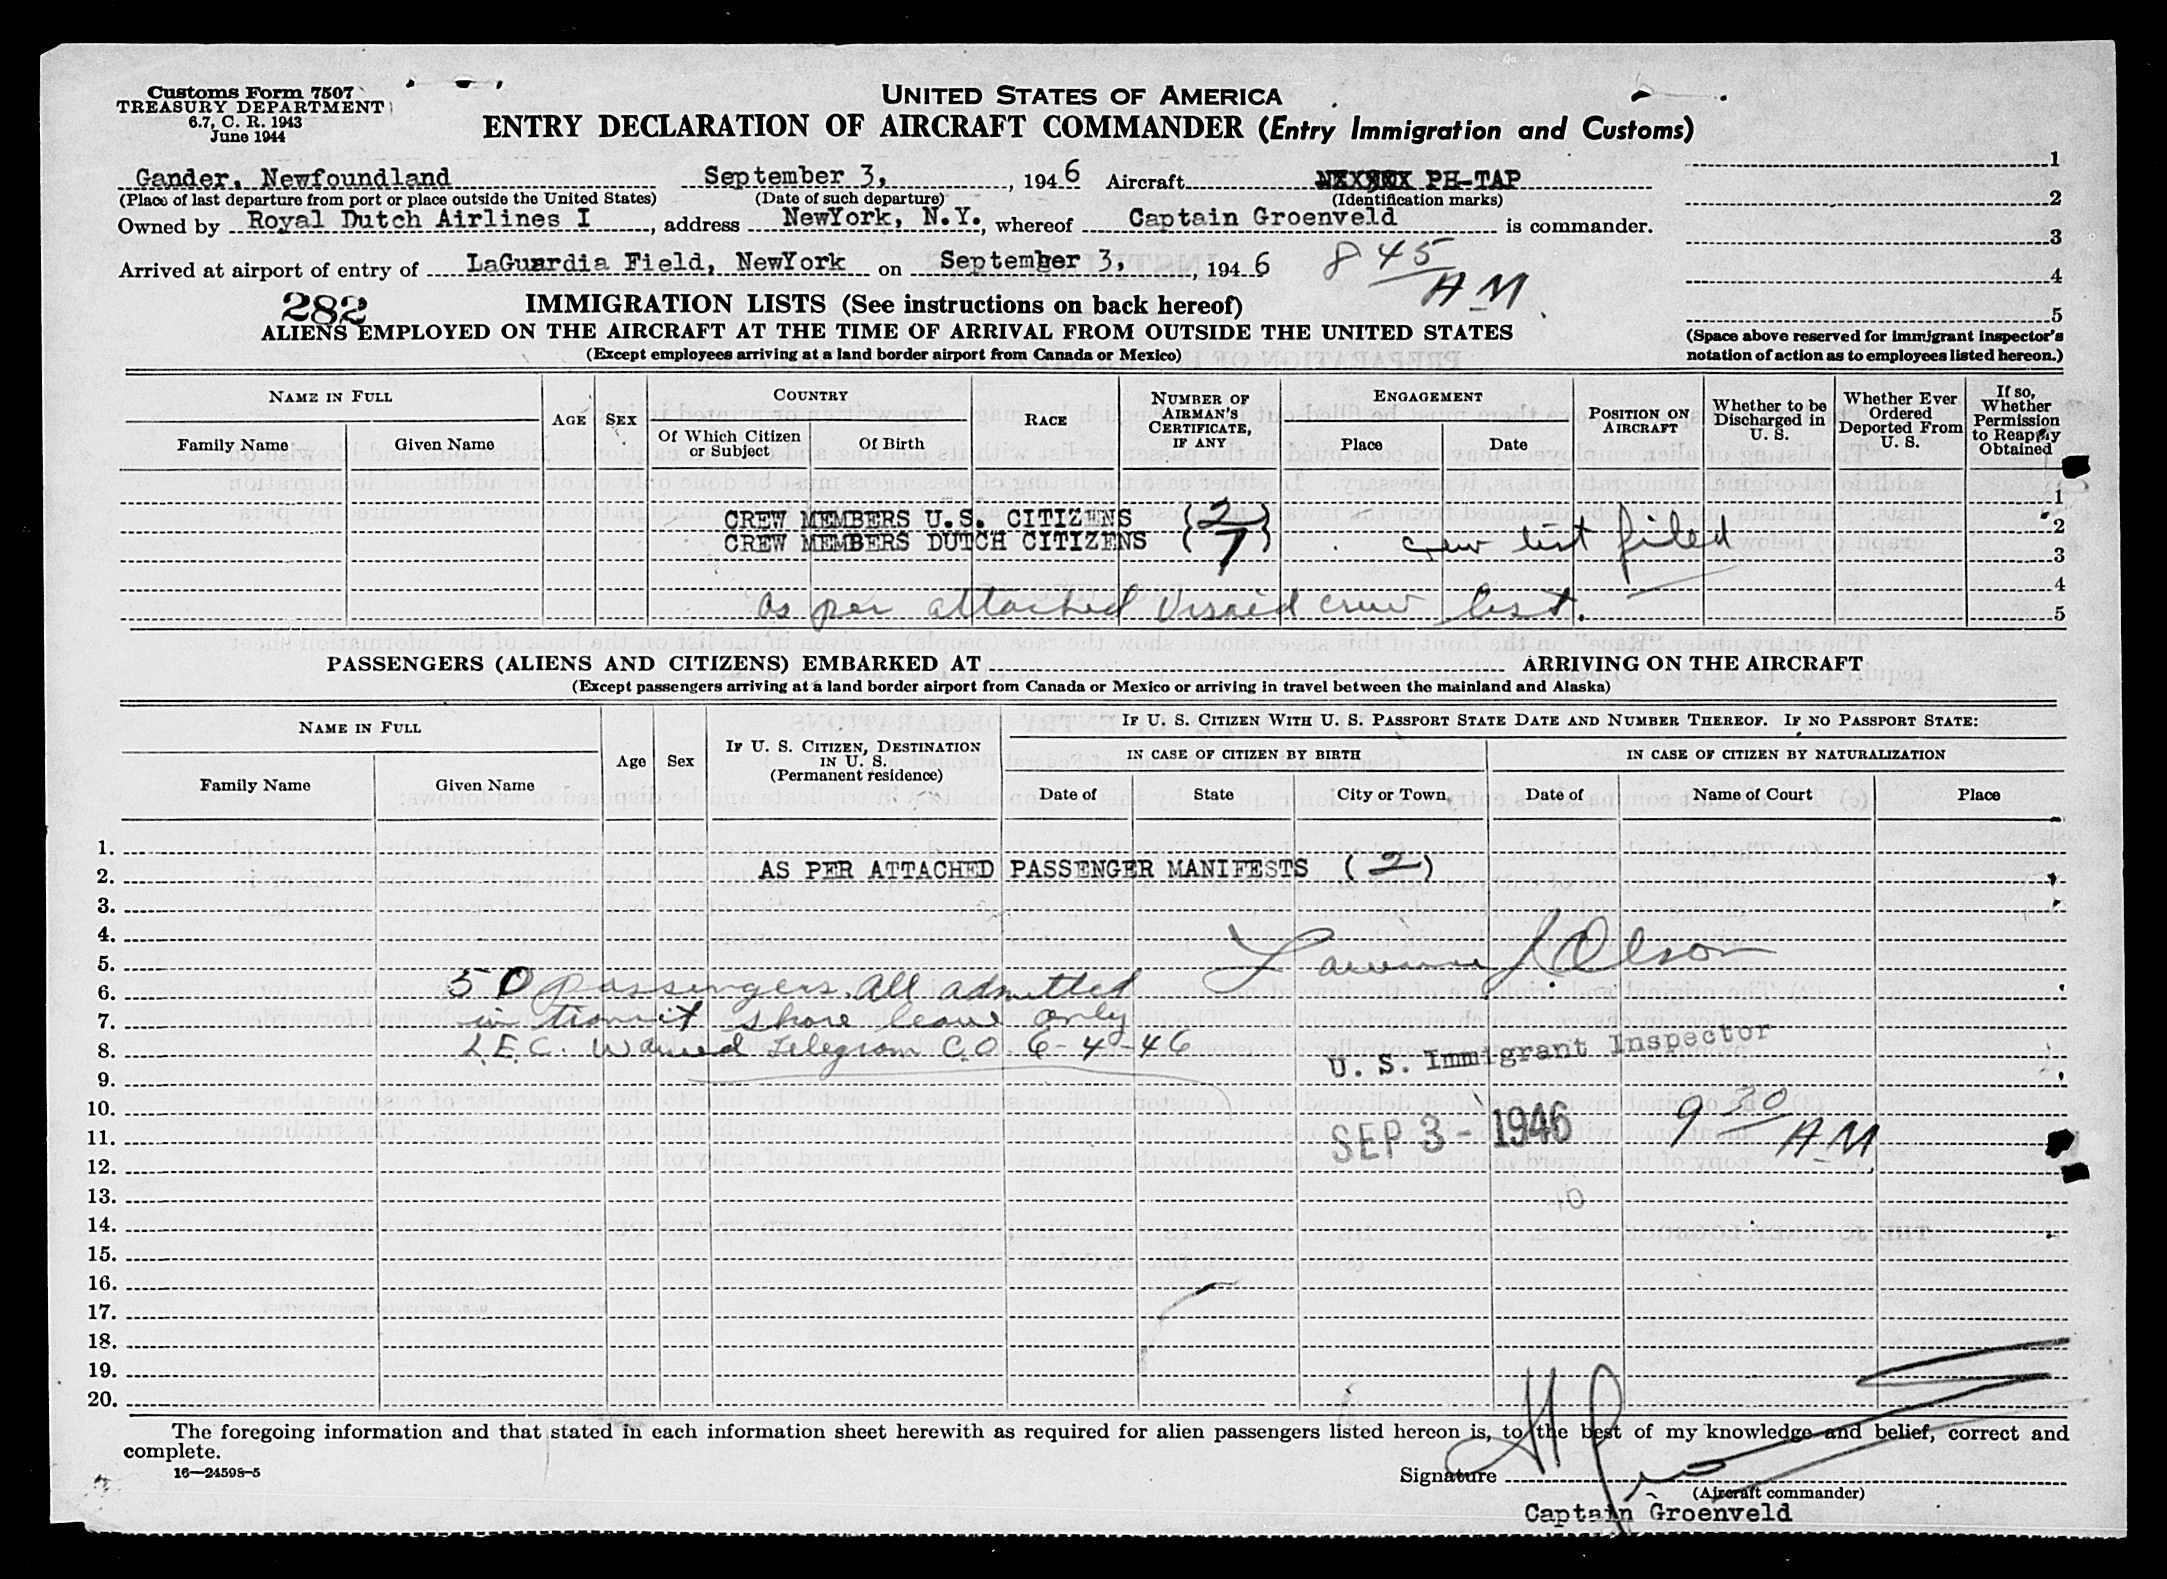 Customs Form 7507
TREASURY DEPARTMENT
6.7, C. R. 1943
June 1944
UNITED STATES OF AMERICA
ENTRY DECLARATION OF AIRCRAFT COMMANDER (Entry Immigration and Customs)
Gander, Newfoundland September 3, , 1946 Aircraft PH-TAP
(Place of last departure from port or place outside the United States) (Date of such departure) (Identification marks)
Owned by Royal Dutch Airlines I , address NewYork, N.Y. , whereof Captain Groenveld is commander.
Arrived at airport of entry of LaGuardia Field, NewYork on September 3, , 1946 8 45 AM
1
2
3
4
5
(Space above reserved for immigrant inspector's
notation of action as to employees listed hereon.)
282
IMMIGRATION LISTS (See instructions on back hereof)
ALIENS EMPLOYED ON THE AIRCRAFT AT THE TIME OF ARRIVAL FROM OUTSIDE THE UNITED STATES
(Except employees arriving at a land border airport from Canada or Mexico)
NAME IN FULL
Family Name Given Name
AGE
SEX
COUNTRY
Of Which Citizen or Subject
Of Birth
RACE
NUMBER OF AIRMAN'S CERTIFICATE, IF ANY
ENGAGEMENT
Place Date
POSITION ON AIRCRAFT
Whether to be Discharged in U. S.
Whether Ever Ordered Deported From U. S.
If so, Whether Permission to Reapply Obtained
1
CREW MEMBERS U.S. CITIZENS (2) 2
CREW MEMBERS DUTCH CITIZENS (7) crew list filed 3
4
as per attached Visaed crew list. 5
PASSENGERS (ALIENS AND CITIZENS) EMBARKED AT ARRIVING ON THE AIRCRAFT
(Except passengers arriving at a land border airport from Canada or Mexico or arriving in travel between the mainland and Alaska)
NAME IN FULL
Family Name Given Name
Age
Sex
IF U. S. CITIZEN, DESTINATION IN U. S.
(Permanent residence)
IF U. S. CITIZEN WITH U. S. PASSPORT STATE DATE AND NUMBER THEREOF. IF NO PASSPORT STATE:
IN CASE OF CITIZEN BY BIRTH IN CASE OF CITIZEN BY NATURALIZATION
Date of State City or Town Date of Name of Court Place
1.
2. AS PER ATTACHED PASSENGER MANIFESTS (2)
3.
4.
5. Lawrence J. Olson
6. 50 passengers. All admitted
7. in transit shore leave only
8. I.E.C. Waived telegram C.O. 6-4-46
U. S. Immigrant Inspector
9.
10. 9 30 AM
11. SEP 3 - 1946
12.
13. 10
14.
15.
16.
17.
18.
19.
20.
The foregoing information and that stated in each information sheet herewith as required for alien passengers listed hereon is, to the best of my knowledge and belief, correct and
complete.
16—24598-5
Signature
(Aircraft commander)
Captain Groenveld